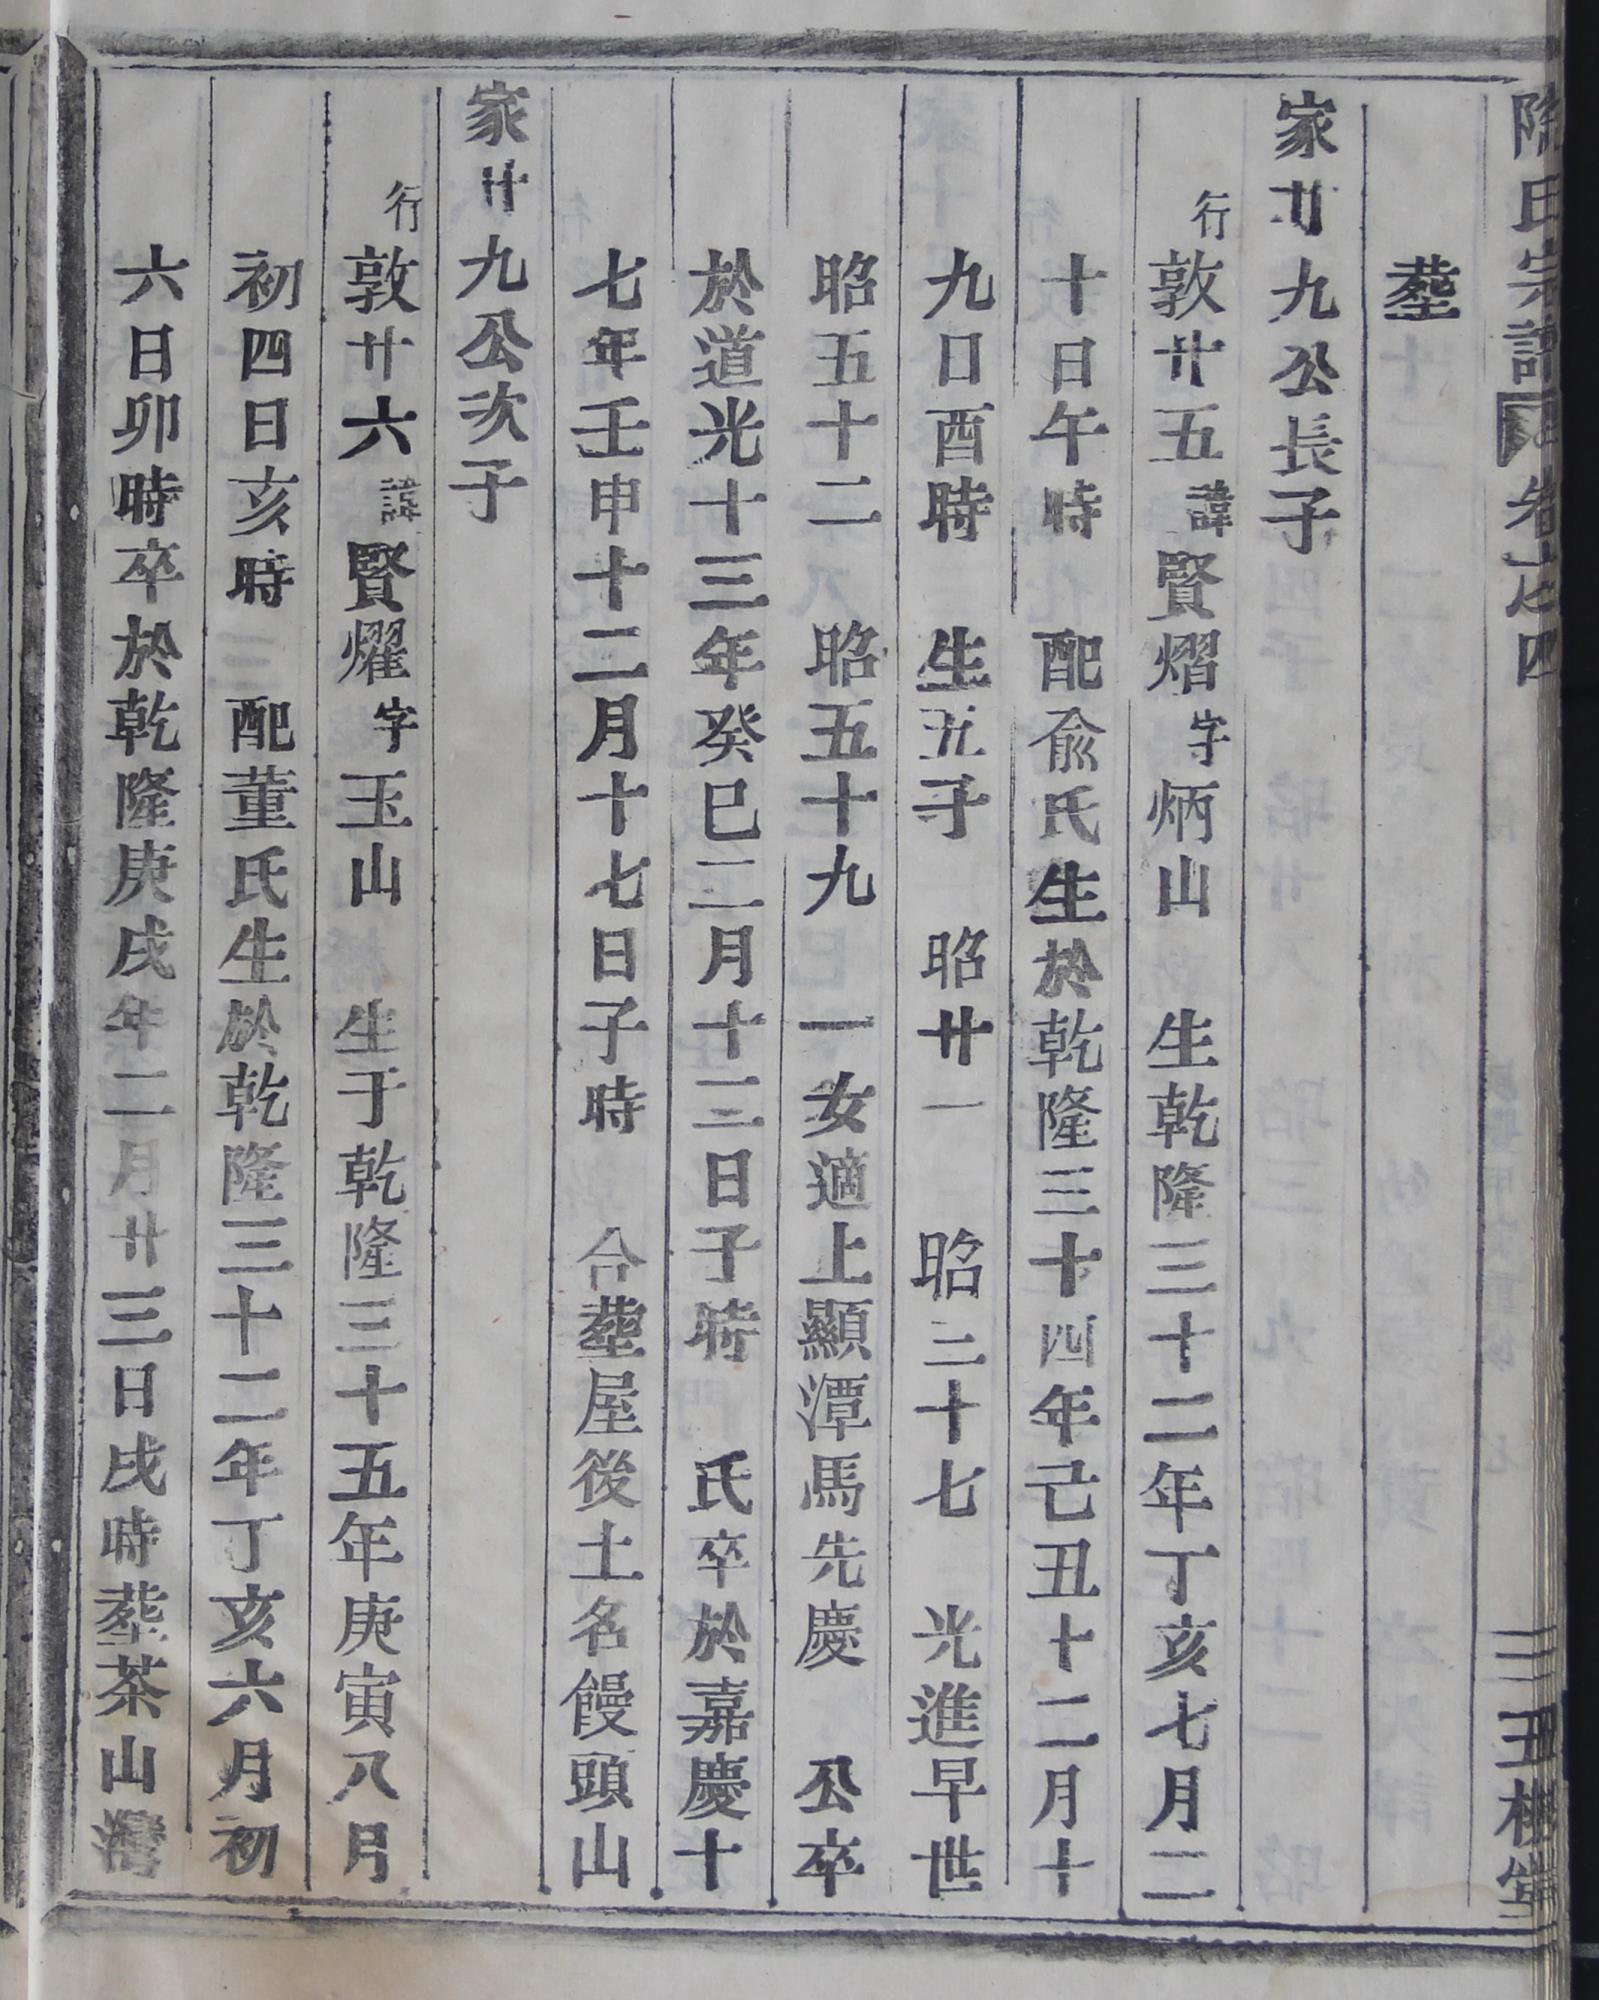 氏宗譜 卷之四 三五槐堂
塟
家廿九公長子
行敦廿五諱賢熠字炳山 生乾隆三十二年丁亥七月二
十日午時 配俞氏生於乾隆三十四年己丑十二月十
九日酉時 生五子 昭廿一 昭二十七 光進早世
昭五十二 昭五十九 一女適上顯潭馬先慶 公卒
於道光十三年癸巳二月十三日子時 氏卒於嘉慶十
七年壬申十二月十七日子時 合塟屋後土名饅頭山
家廿九公次子
行敦廿六諱賢燿字玉山 生于乾隆三十五年庚寅八月
初四日亥時 配董氏生於乾隆三十二年丁亥六月初
六日卯時卒於乾隆庚戌年二月廿三日戌時塟茶山灣